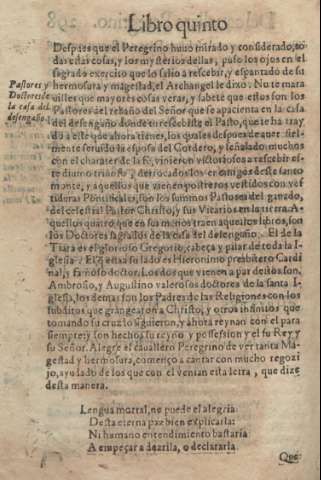 Libro quinto
Despues que el Peregrino huuo mirado y considerado, to
das estas cosas, y los mysterios dellas, puso los ojos en el
sagrado exercito que lo salio a rescebir, y espantado de su
Pastores y
Doctores de
la casa del
desengaño.
hermosura y magestad, el Archangel le dixo. No te mara
uilles que mayores cosas veras, y sabete que estos son los
Pastores del rebaño del Señor que se apacienta en la casa
del desengaño donde tu rescebiste el Pasto, que te ha tray
do a este que ahora tienes, los quales despues de auer fiel-
mente seruido la esposa del Cordero, y señalado muchos
con el charater de la fe, vinieron victoriosos a rescebir es
te diuino triunfo, derrocados los enemigos deste santo
monte, y aquellos que vienen postreros vestidos con vesti
duras Pontificales, son los summos Pastores del ganado,
del celestial Pastor Christo, y sus Vicarios en la tierra. A
quellos quatro que en sus manos traen aquellos libros, son
los Doctores sagrados de la casa del desengaño. El de la
Tiara es el glorioso Gregorio, cabeça y pilar de toda la I-
glesia. El que esta a su lado es Hieronimo presbitero Cardi
nal, y famoso doctor. Los dos que vienen a par destos son,
Ambrosio, y Augustino valerosos doctores de la santa I-
glesia, los demas son los Padres de las Religiones con los
subditos que grangearon a Christo, y otros infinitos que
tomando su cruz lo siguieron, y ahora reynan con el para
siempre, y son hechos su reyno y possession y el su Rey y
su Señor. Alegre el cauallero Peregrino de ver tanta Ma-
gestad y hermosura, començo a cantar con mucho regozi
jo, ayudado de los que con el venian esta letra, que dize
desta manera.
Lengua mortal, ne puede el alegria
Desta eterna paz bien explicarla:
Ni humano entendimiento bastaria
A empeçar a dezirla, o declararla.
Que